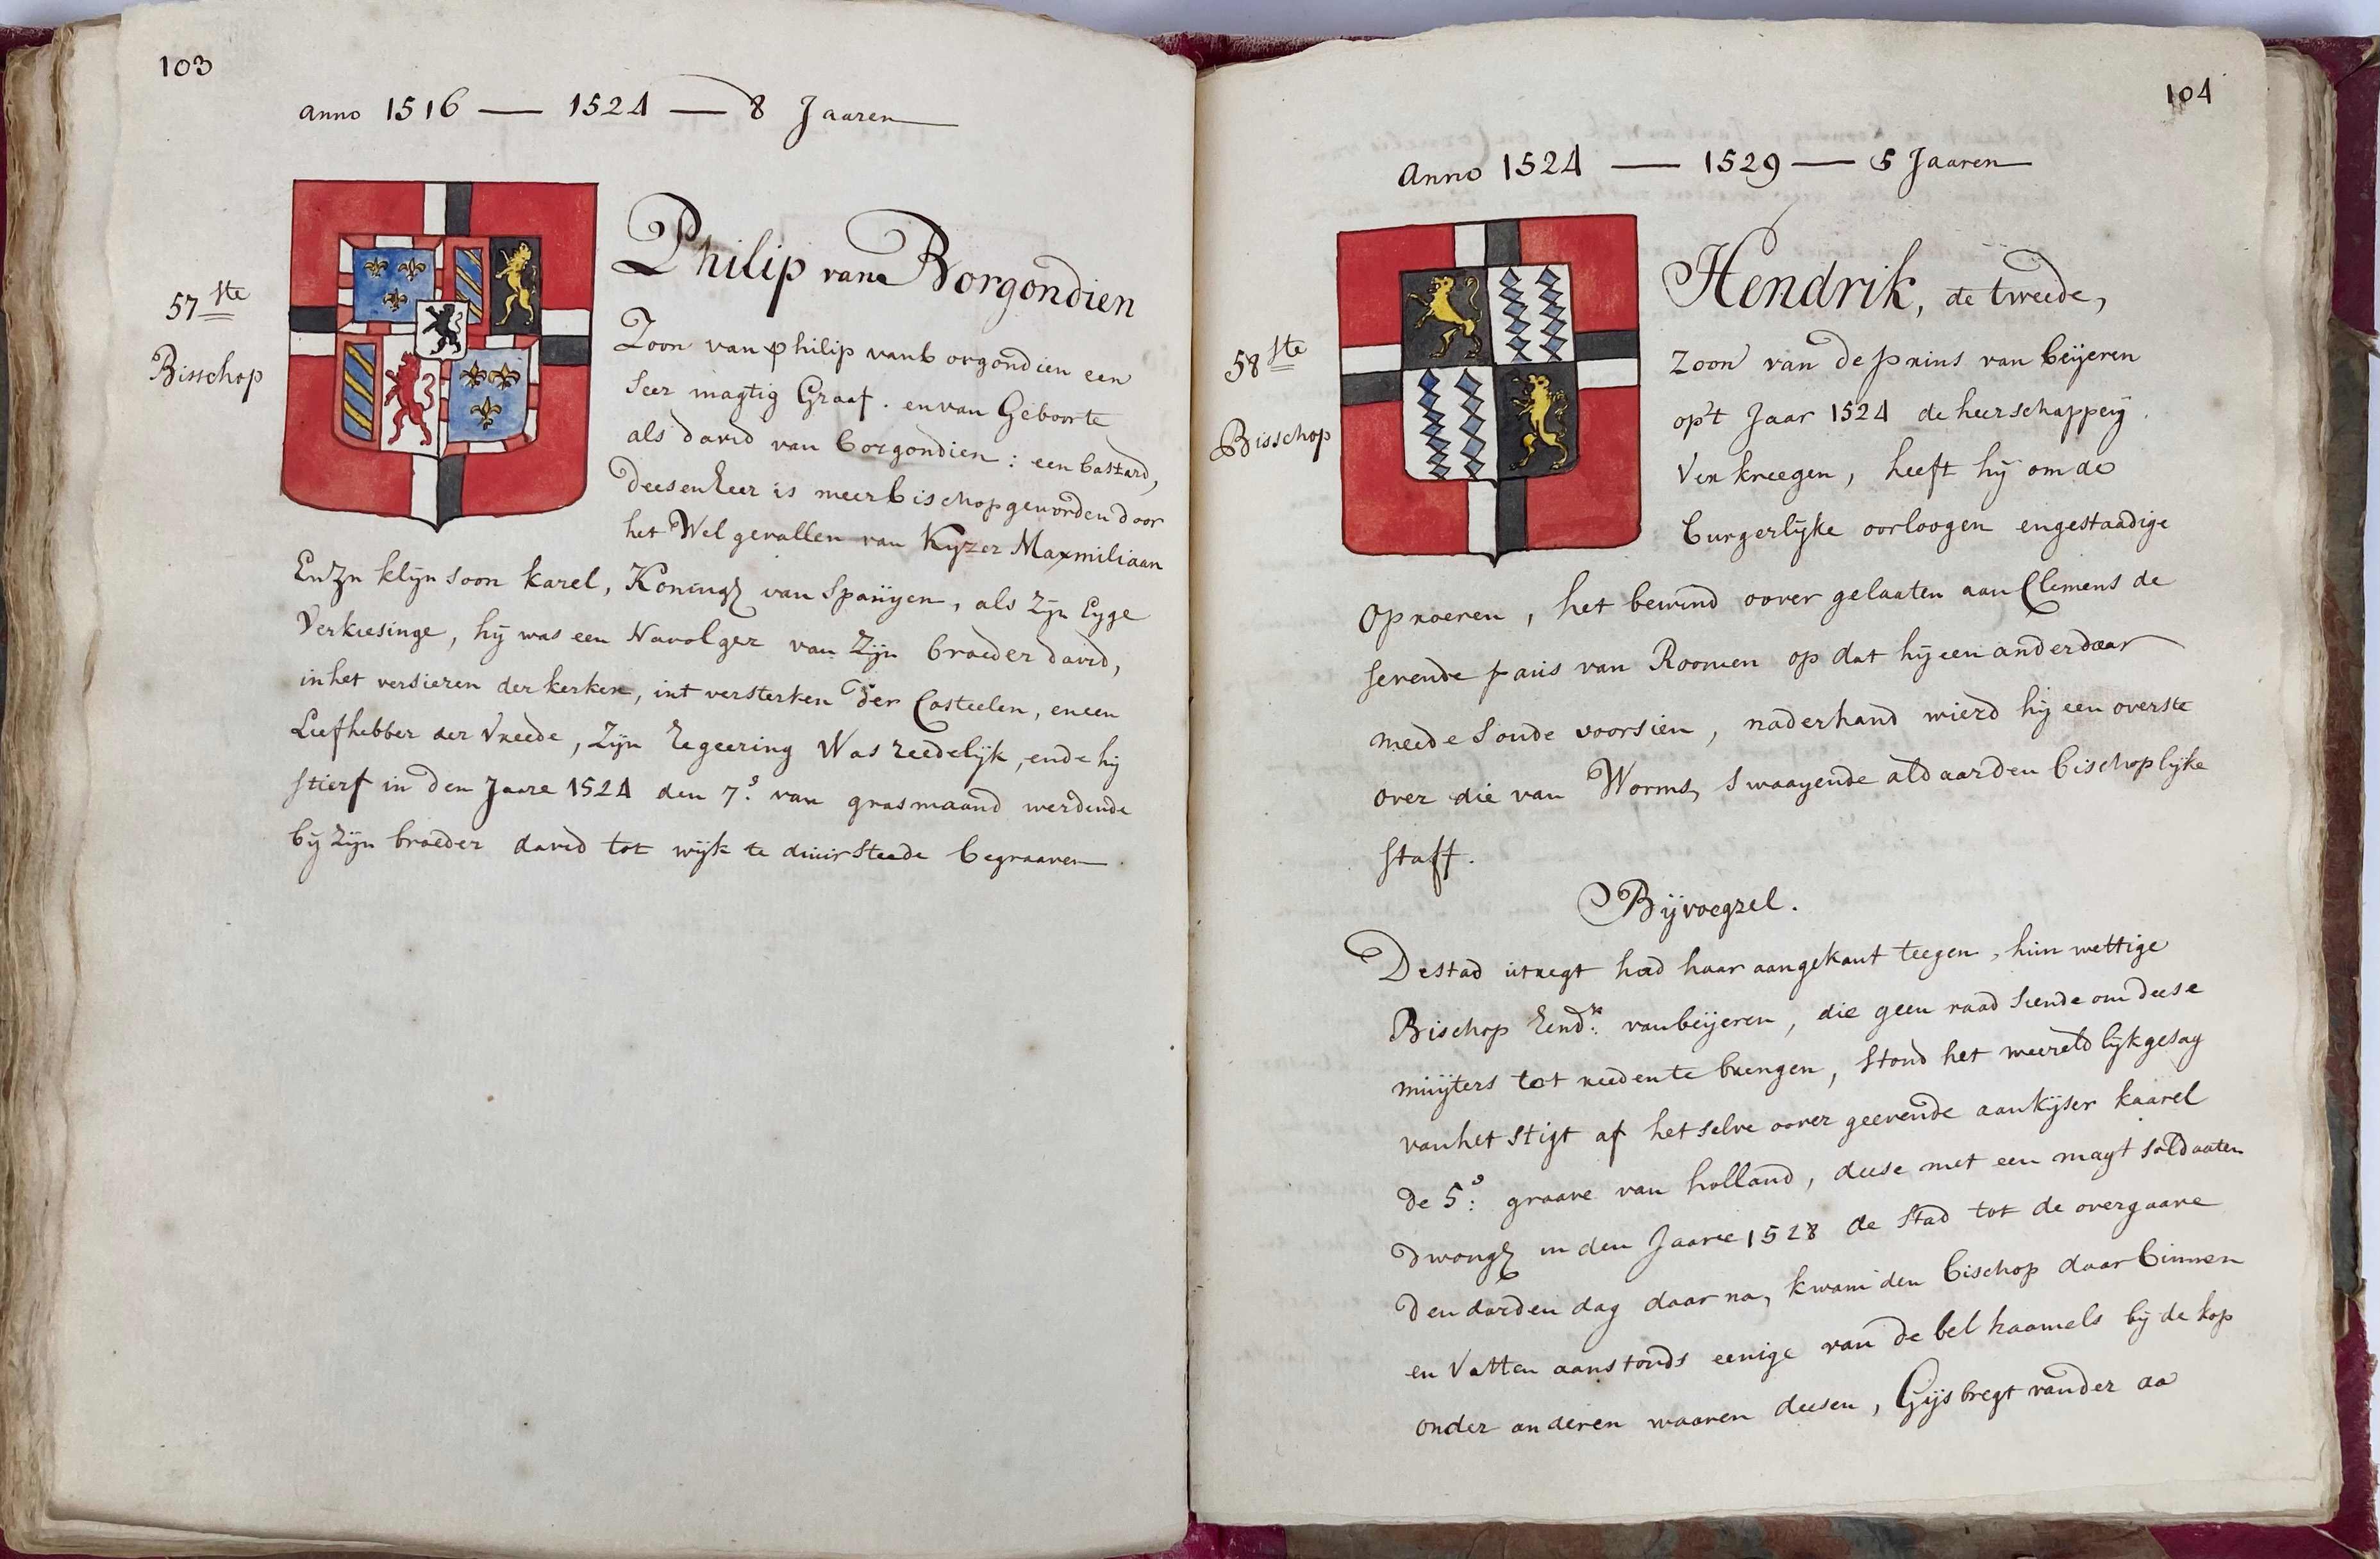 103
anno 1516 — 1524 — 8 Jaaren
57ste
Bisschop
Philip van Borgondien
Zoon van philip van borgondien een
Seer magtig Graaf. en van Geboorte
als david van borgondien: een bastard,
deesen heer is meer bischop geworden door
het Wel gevallen van Kyzer Maxmiliaan
En zn klijn soon karel, Koning van Spanjen, als Zijn Eyge
Verkiesinge, hij was een Navolger van Zijn broeder david,
in het versieren der kerken, int versterken der Casteelen, en een
Liefhebber der Vreede, Zijn regeering Was reedelijk, ende hij
stierf in den Jaare 1524 den 7e. van grasmaand werdende
bij Zijn broeder david tot wijk te duirsteede begraaven
104
Anno 1524 — 1529 — 5 Jaaren
58ste
Bisschop
Hendrik, de tweede,
Zoon van de prins van beijeren
op't Jaar 1524 de heerschappeij
Verkreegen, heeft hij om de
burgerlijke oorloogen en gestaadige
Oproeren, het bewind oover gelaaten aan Clemens de
sevende paus van Roomen op dat hij een ander daar
meede Soude voorsien, naderhand wierd hij een overste
over die van Worms, Swaayende aldaar den bischoplijke
Staff.
Bijvoegzel.
De stad utregt had haar aangekant teegen, hun wettige
Bischop Hendk: van beijeren, die geen raad Siende om deese
muijters tot reeden te brengen, Stond het weereldlijk gesag
van het Stigt af het selve oover geevende aan kijser kaarel
de 5e: graave van holland, deese met een magt soldaaten
dwong in den Jaare 1528 de Stad tot de overgaave
den darden dag daar na, kwam den bischop daar binnen
en Vatten aanstonds eenige van de bel haamels bij de kop
onder anderen waaren deesen, Gijsbregt vander aa